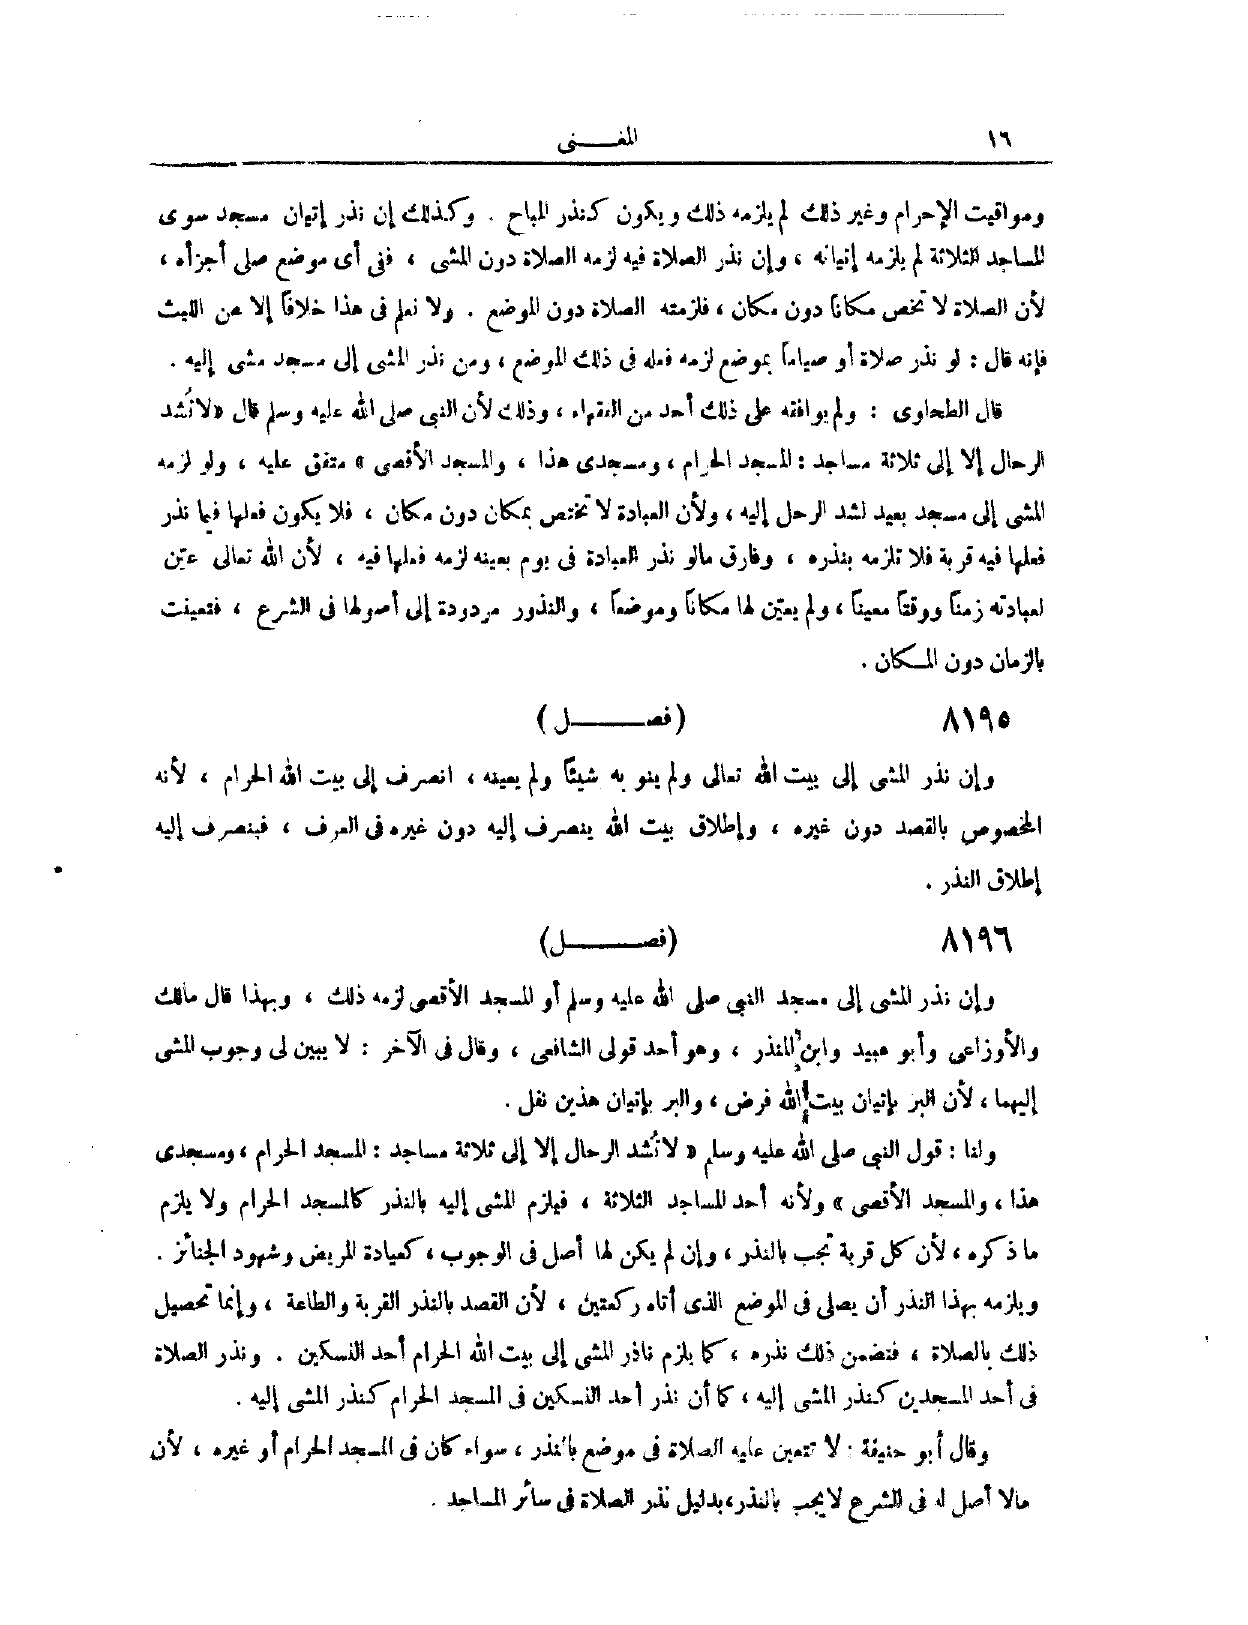 ١٦
المغـــنى
ومواقيت الإحرام وغير ذلك لم يلزمه ذلك ويكون كنذر المباح . وكذلك إن نذر إتيان مسجد سوى
المساجد الثلاثة لم يلزمه إتيانه ، وإن نذر الصلاة فيه لزمه الصلاة دون المشى ، ففى أى موضع صلى أجزأه ،
لأن الصلاة لا تخص مكاناً دون مكان ، فلزمته الصلاة دون الموضع . ولا نعلم فى هذا خلافاً إلا عن الليث
فإنه قال : لو نذر صلاة أو صياماً بموضع لزمه فعله فى ذلك الموضع ، ومن نذر المشى إلى مسجد مشى إليه .
قال الطحاوى : ولم يوافقه على ذلك أحد من الفقهاء ، وذلك لأن النبى صلى الله عليه وسلم قال « لا تُشد
الرحال إلا إلى ثلاثة مساجد : المسجد الحرام ، ومسجدى هذا ، والمسجد الأقصى » متفق عليه ، ولو لزمه
المشى إلى مسجد بعيد لشد الرحل إليه ، ولأن العبادة لا تختص بمكان دون مكان ، فلا يكون فعلها فيما نذر
فعلها فيه قربة فلا تلزمه بنذره ، وفارق مالو نذر العبادة فى يوم بعينه لزمه فعلها فيه ، لأن الله تعالى عيّن
لعبادته زمناً ووقتاً معيناً ، ولم يعيّن لها مكاناً وموضعاً ، والنذور مردودة إلى أصولها فى الشرع ، فتعينت
بالزمان دون المكان .
٨١٩٥
(فصـــــل)
وإن نذر المشى إلى بيت الله تعالى ولم ينو به شيئاً ولم يعينه ، انصرف إلى بيت الله الحرام ، لأنه
المخصوص بالقصد دون غيره ، وإطلاق بيت الله ينصرف إليه دون غيره فى العرف ، فينصرف إليه
إطلاق النذر .
٨١٩٦
(فصـــــل)
وإن نذر المشى إلى مسجد النبى صلى الله عليه وسلم أو المسجد الأقصى لزمه ذلك ، وبهذا قال مالك
والأوزاعى وأبو عبيد وابن المنذر ، وهو أحد قولى الشافعى ، وقال فى الآخر : لا يبين لى وجوب المشى
إليهما ، لأن البر بإتيان بيت الله فرض ، والبر بإتيان هذين نفل .
ولنا : قول النبى صلى الله عليه وسلم « لا تُشد الرحال إلا إلى ثلاثة مساجد : المسجد الحرام ، ومسجدى
هذا ، والمسجد الأقصى » ولأنه أحد المساجد الثلاثة ، فيلزم المشى إليه بالنذر كالمسجد الحرام ولا يلزم
ما ذكره ، لأن كل قربة تجب بالنذر ، وإن لم يكن لها أصل فى الوجوب ، كعيادة المريض وشهود الجنائز .
ويلزمه بهذا النذر أن يصلى فى الموضع الذى أتاه ركعتين ، لأن القصد بالنذر القربة والطاعة ، وإنما تحصيل
ذلك بالصلاة ، فتضمن ذلك نذره ، كما يلزم ناذر المشى إلى بيت الله الحرام أحد النسكين . ونذر الصلاة
فى أحد المسجدين كنذر المشى إليه ، كما أن نذر أحد النسكين فى المسجد الحرام كنذر المشى إليه .
وقال أبو حنيفة : لا تتعين عليه الصلاة فى موضع بالنذر ، سواء كان فى المسجد الحرام أو غيره ، لأن
مالا أصل له فى الشرع لا يجب بالنذر ، بدليل نذر الصلاة فى سائر المساجد .